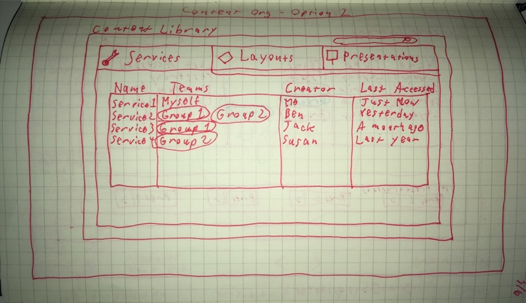 Content Org - Option 2
Content Library
Services Layouts Presentations
Name Teams Creator Last Accessed
Service1 Myself Me Just Now
Service2 Group 1 Group 2 Ben Yesterday
Service3 Group 1 Jack A month ago
Service4 Group 2 Susan Last year